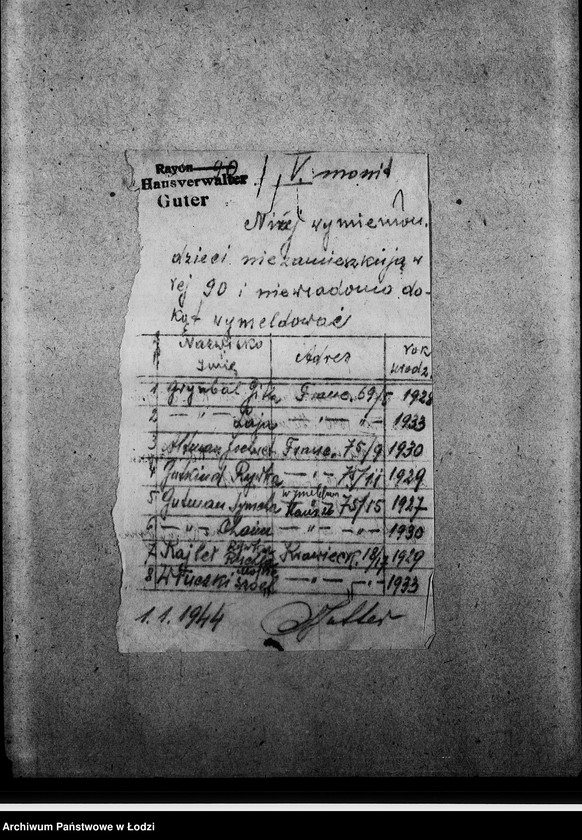 Rayon 90
Hausverwalter
Guter
V. monit
Niżej wymienion.
dzieci niezamieszkują w
rej 90 i niewiadomo do-
kąt wymeldować
Nazwisko
Imię
Adres
rok
urodz.
1 Grynbal Gitla Franc. 69/ 1928
2 — " — Łaja — " — " — 1933
3 Altman Franc. 75/9 1930
4 Gutkind Rywka — " — 75/11 1929
5 Gutman Symcha wymeldow. 75/15 1927
6 — " — Chaim — " — " — 1930
7 Kajler Krawieck. 18/ 1929
8 — " — " — 1933
1.1.1944